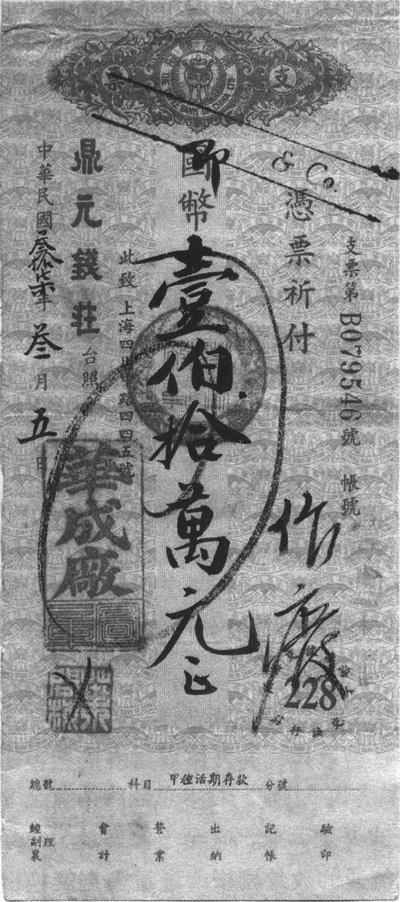 支票
& Co.
支票第B079546號 帳號
憑票祈付
國幣壹佰拾萬元正
即
此致 上海四川路四四五號
鼎元錢莊 台照
中華民國叁拾柒年叁月五日
華成廠
作廢
228
總號 科目 甲種活期存款 分號
經副襄理 會計 營業 出納 記帳 驗印